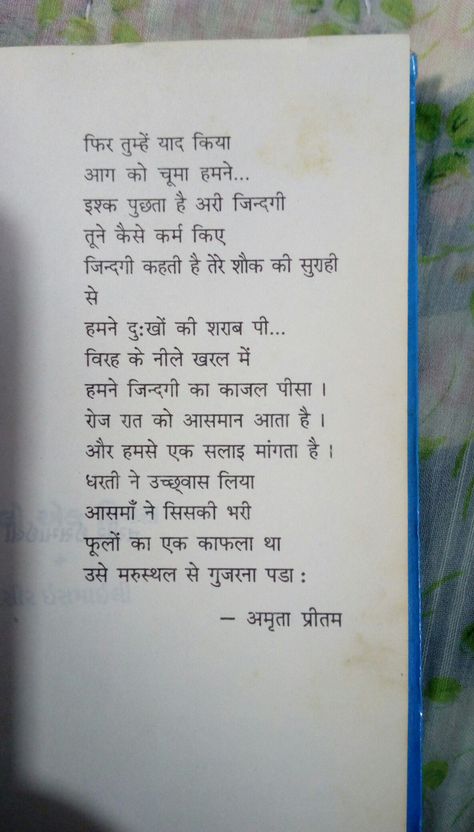 फिर तुम्हें याद किया
आग को चूमा हमने...
इश्क पुछता है अरी जिन्दगी
तूने कैसे कर्म किए
जिन्दगी कहती है तेरे शौक की सुराही
से
हमने दुःखों की शराब पी...
विरह के नीले खरल में
हमने जिन्दगी का काजल पीसा ।
रोज रात को आसमान आता है ।
और हमसे एक सलाइ मांगता है ।
धरती ने उच्छ्वास लिया
आसमाँ ने सिसकी भरी
फूलों का एक काफला था
उसे मरुस्थल से गुजरना पडा :
– अमृता प्रीतम